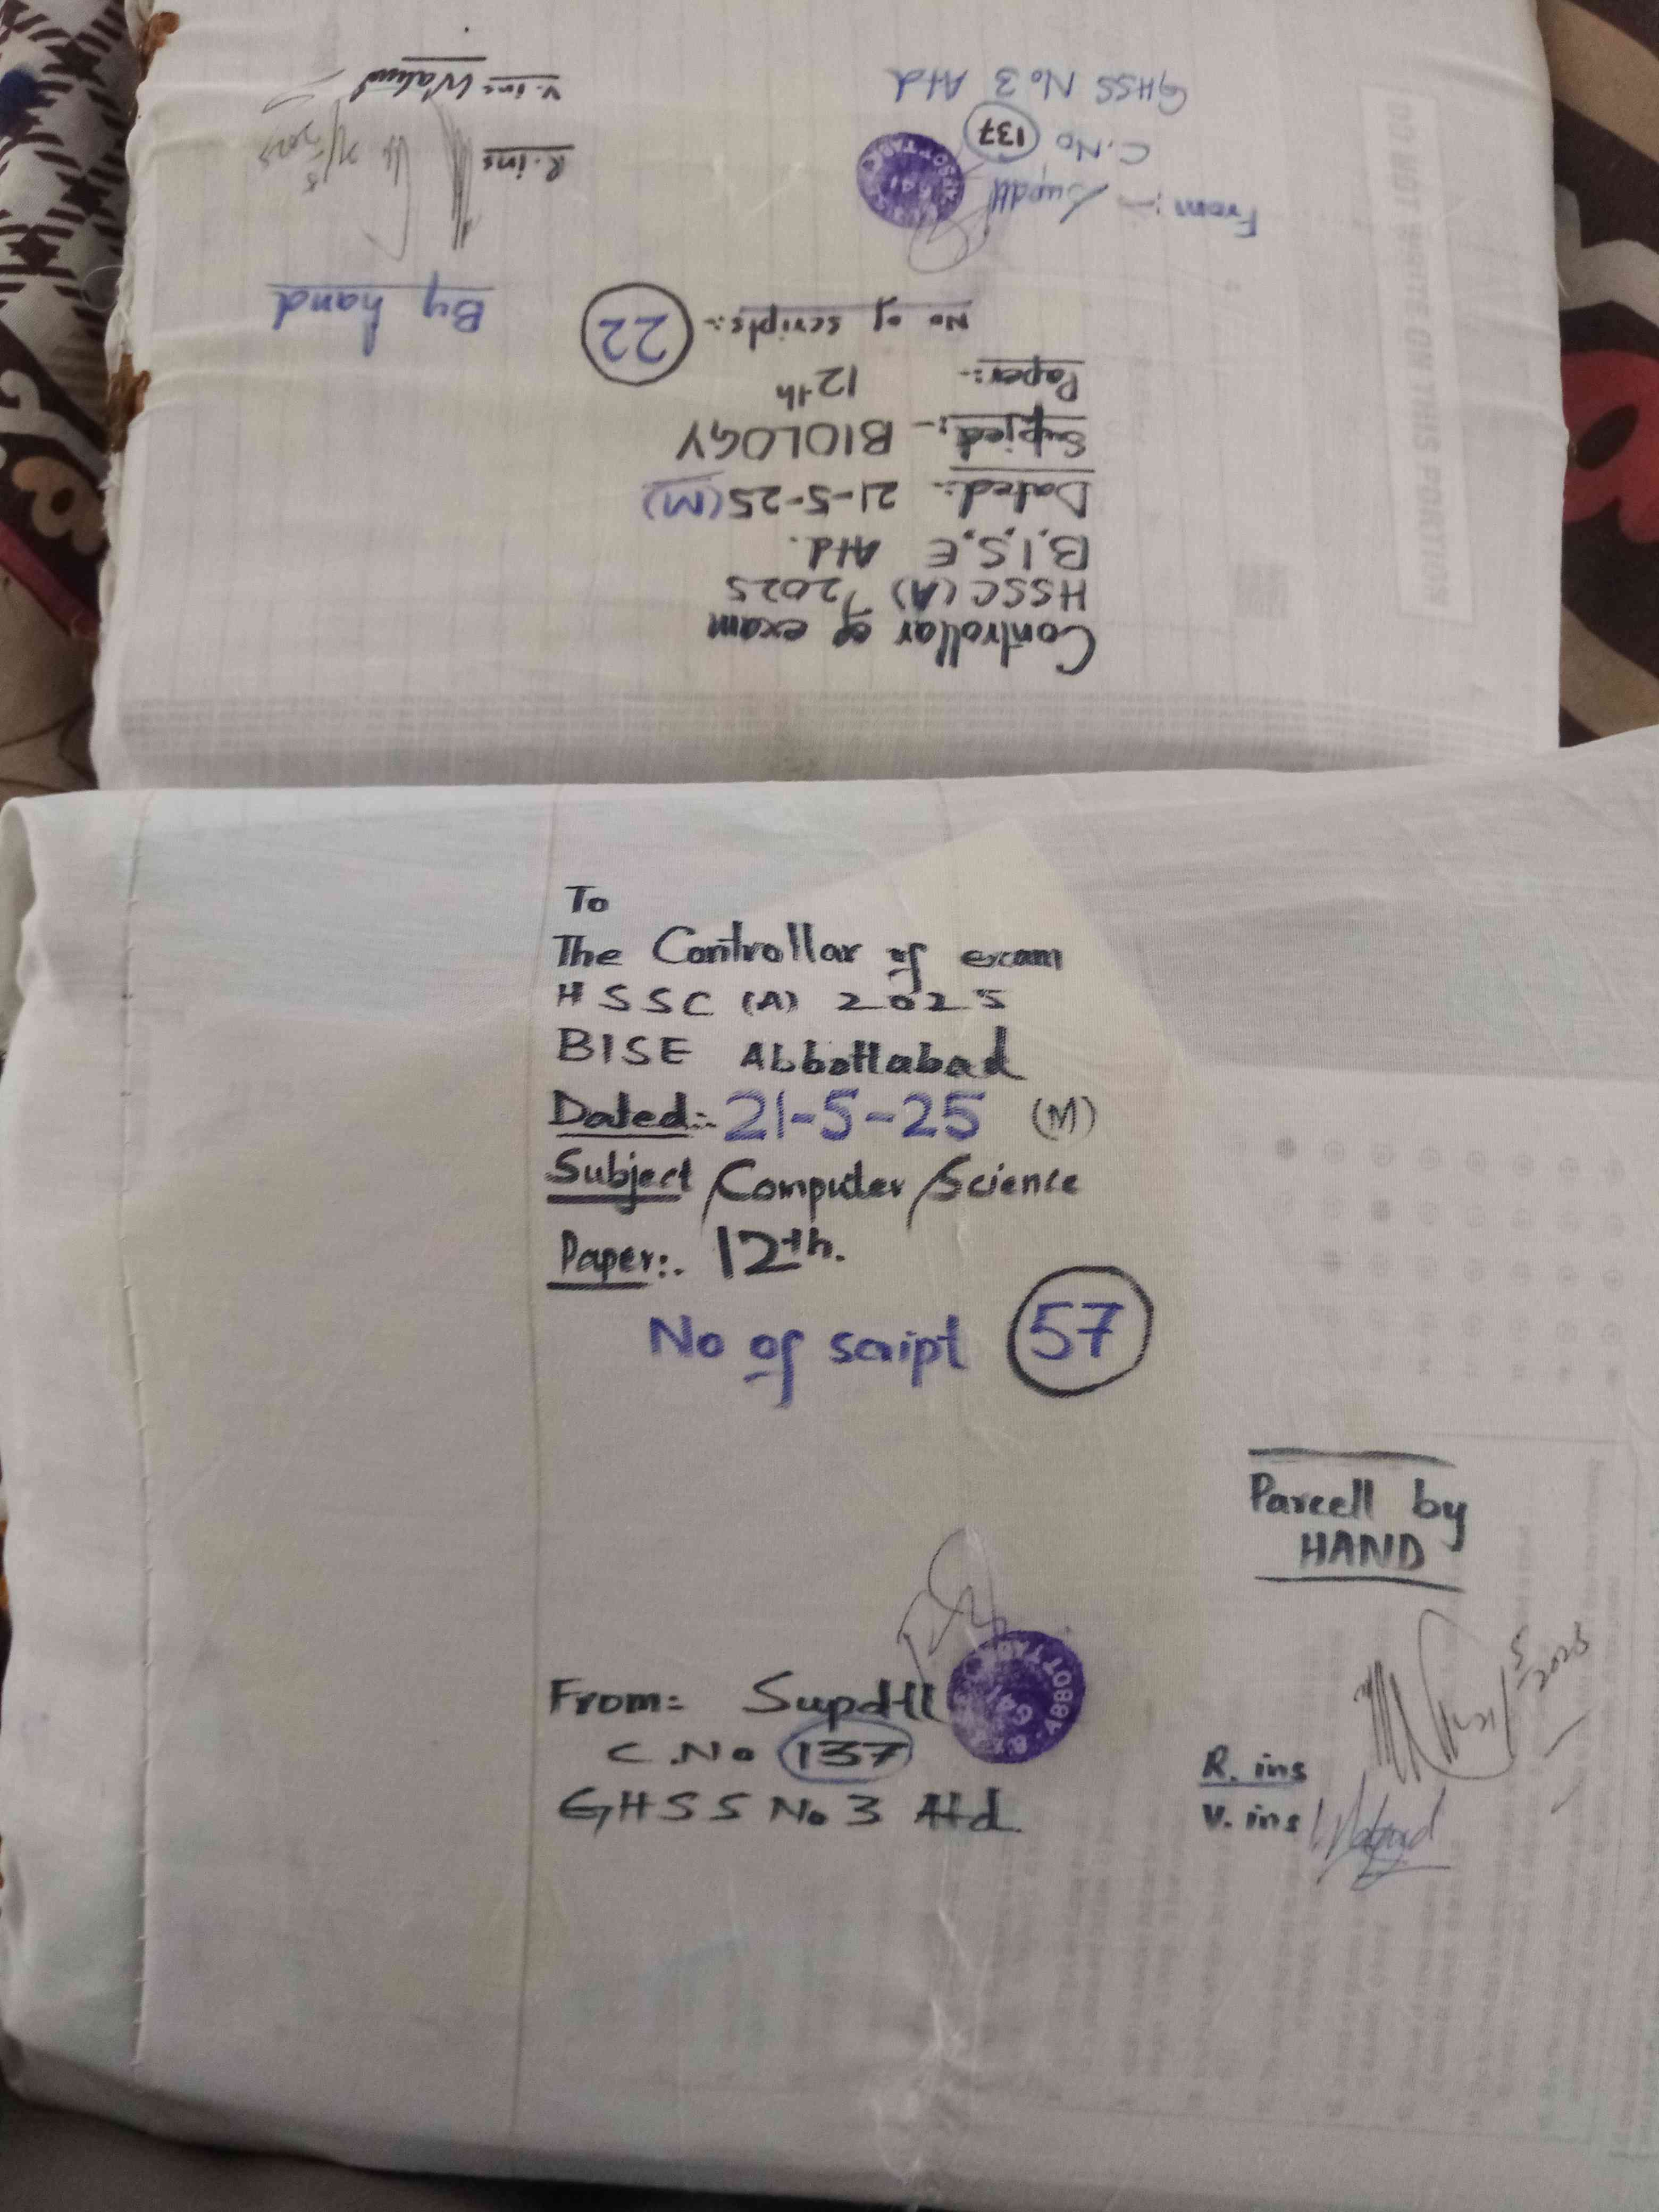 Controllar of exam
HSSC (A) 2025
B.I.S.E Atd.
Dated:- 21-5-25 (M)
Subject:- BIOLOGY
Paper:- 12th
No of scripts:- 22
By hand
From:- Supdtt
C.No 137
GHSS No 3 Atd
R.ins
V.ins
DO NOT WRITE ON THIS PORTION
To
The Controllar of exam
HSSC (A) 2025
BISE Abbottabad
Dated:- 21-5-25 (M)
Subject Computer Science
Paper:. 12th.
No of script 57
Parcell by
HAND
From= Supdtt
C.No 137
GHSS No 3 Atd.
R. ins
V. ins
5/2025